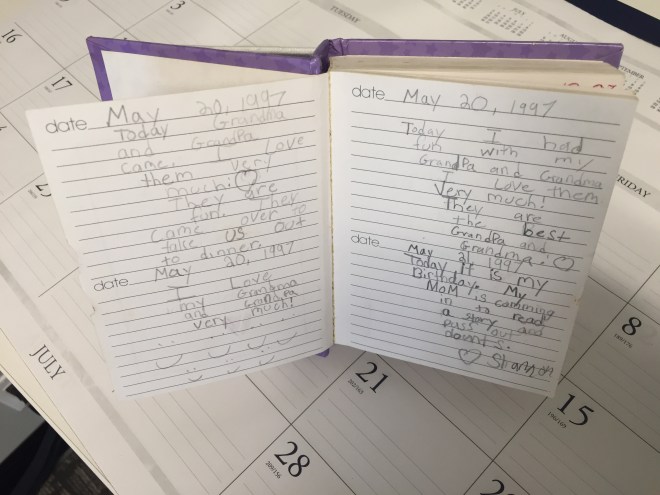 date May 20, 1997
Today Grandma
and Grandpa
came. I love
them very
much! ♡
They are
fun. They
came over to
take us out
to dinner.
date May 20, 1997
I Love
my Grandma
and Grandpa
very much!
date May 20, 1997
Today I had
fun with my
GrandPa and Grandma
I Love them
Very much!
They are
the best
GrandPa and
Grandma. ♡
date May 21, 1997
Today it is my
Birthday. My
MoM is comming
in to read
a story and
puss out
dounts.
♡ Shannon
16
17
3
TUESDAY
JULY
FRIDAY
JULY
21
28
8
15